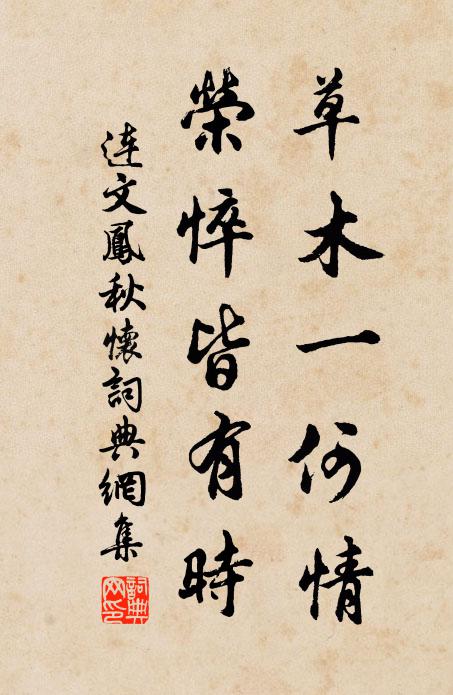 草木一何情
榮悴皆有時
連文鳳秋懷詞典網集
詞典网印